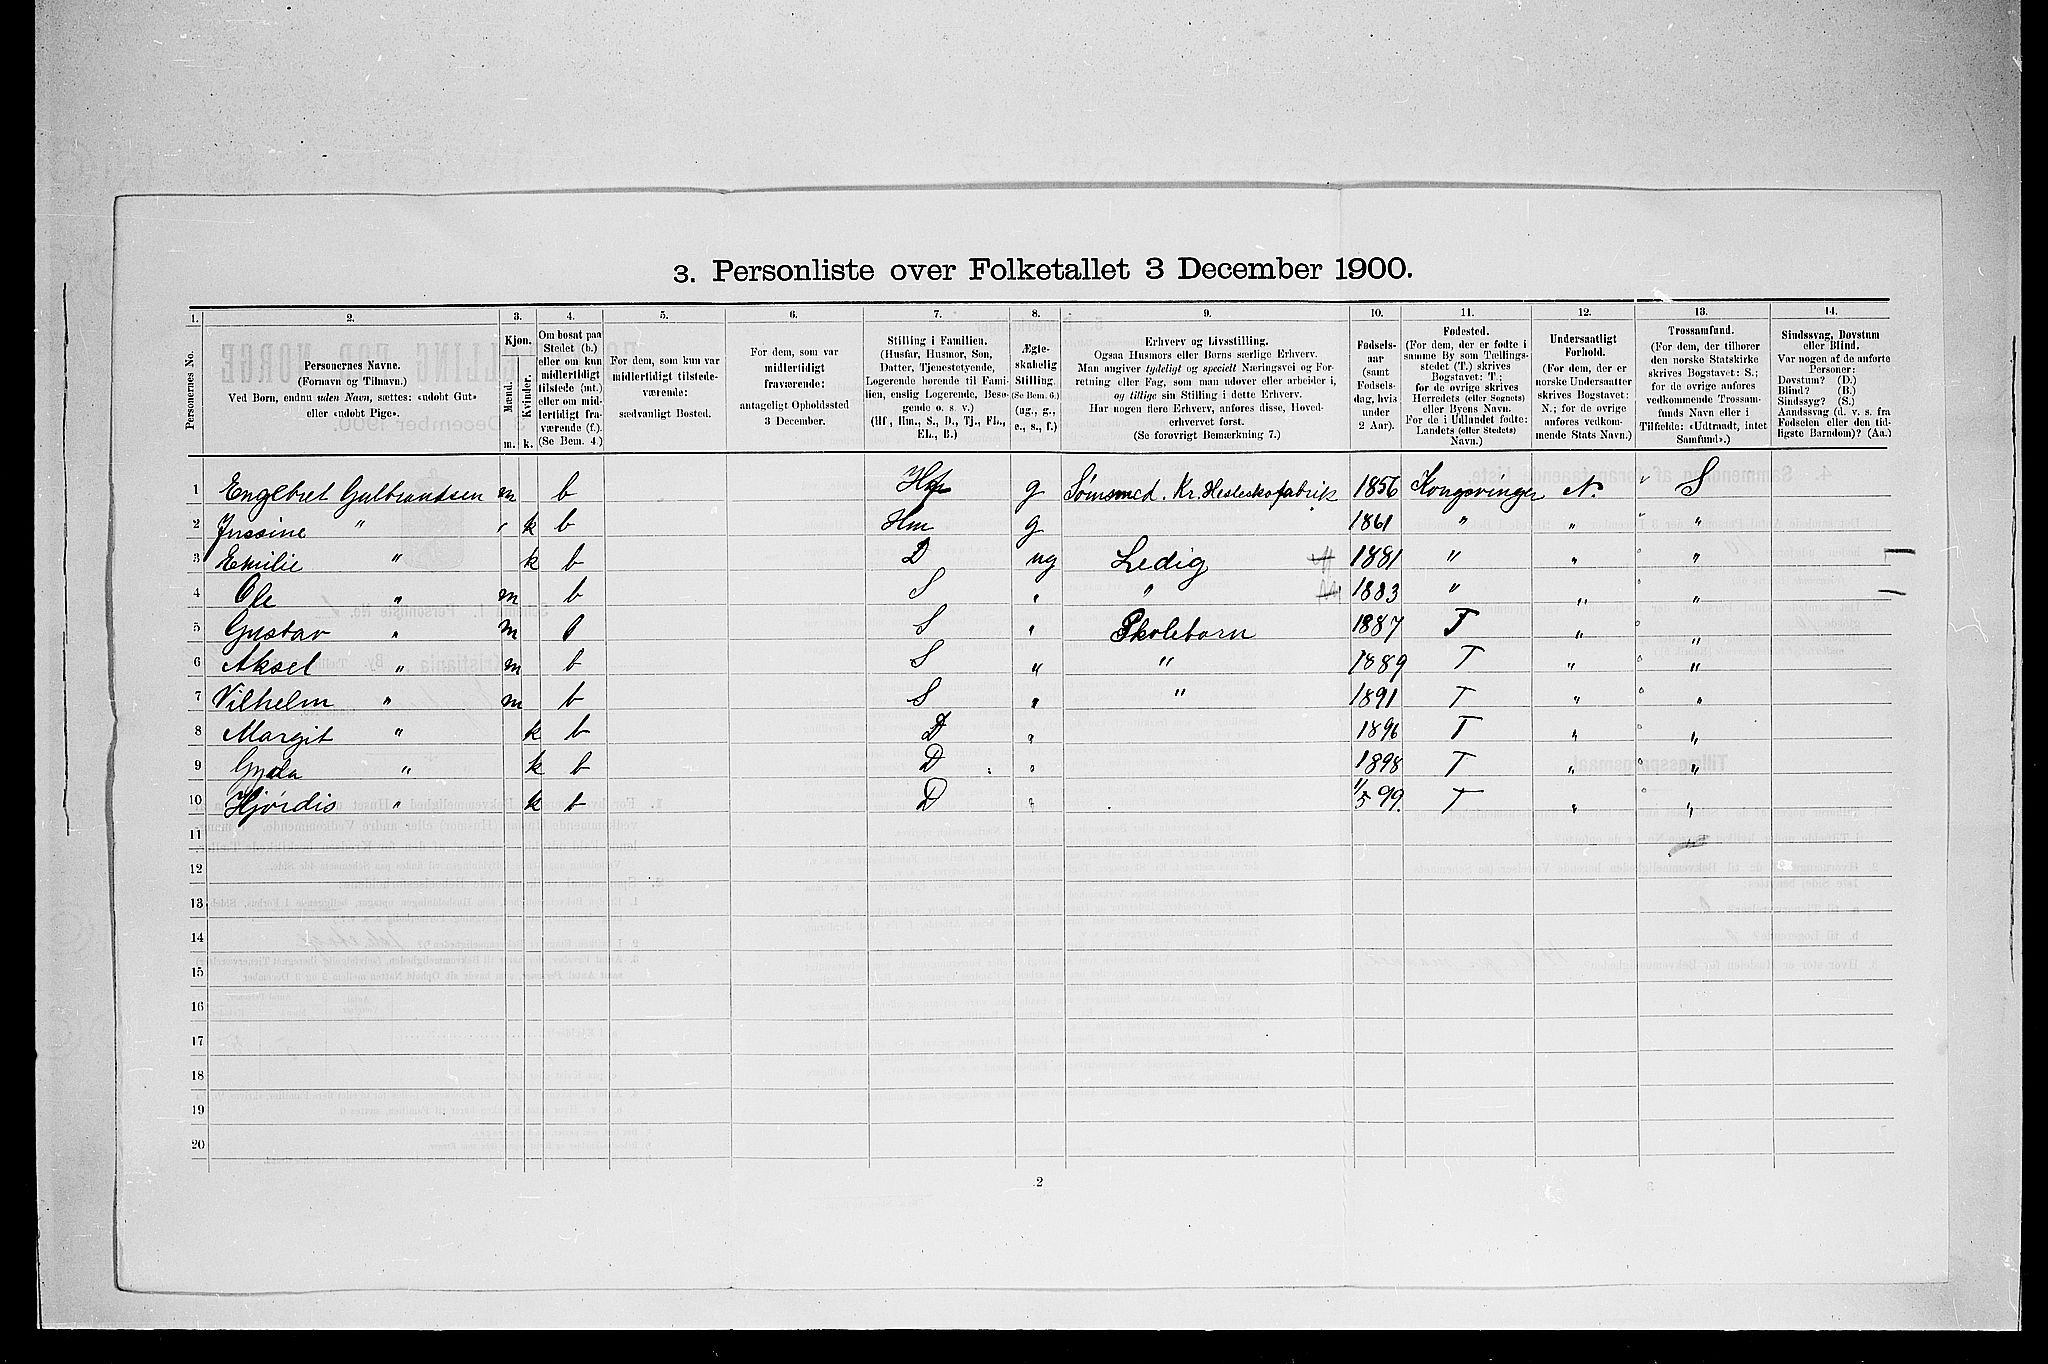 3. Personliste over Folketallet 3 December 1900.
1. 2. 3. 4. 5. 6. 7. 8. 9. 10. 11. 12. 13. 14.
Personernes No.
Personernes Navne.
(Fornavn og Tilnavn.)
Ved Børn, endnu uden Navn, sættes: «udøbt Gut»
eller «udøbt Pige».
Kjøn.
Mænd. Kvinder.
m. k.
Om bosat paa
Stedet (b.)
eller om kun
midlertidigt
tilstede (mt.)
eller om mid-
lertidigt fra-
værende (f.).
(Se Bem. 4.)
For dem, som kun var
midlertidigt tilstede-
værende:
sædvanligt Bosted.
For dem, som var
midlertidigt
fraværende:
antageligt Opholdssted
3 December.
Stilling i Familien.
(Husfar, Husmor, Søn,
Datter, Tjenestetyende,
Logerende hørende til Fami-
lien, enslig Logerende, Besø-
gende o. s. v.)
(Hf., Hm., S., D., Tj., FL.,
EL., B.)
Ægte-
skabelig
Stilling.
(Se Bem. 6.)
(ug., g.,
e., s., f.)
Erhverv og Livsstilling.
Ogsaa Husmors eller Børns særlige Erhverv.
Man angiver tydeligt og specielt Næringsvei og For-
retning eller Fag, som man udøver eller arbeider i,
og tillige sin Stilling i dette Erhverv.
Har nogen flere Erhverv, anføres disse, Hoved-
erhvervet først.
(Se forøvrigt Bemærkning 7.)
Fødsels-
aar
(samt
Fødsels-
dag, hvis
under
2 Aar).
Fødested.
(For dem, der er fødte i
samme By som Tællings-
stedet (T.) skrives
Bogstavet: T.;
for de øvrige skrives
Herredets (eller Sognets)
eller Byens Navn.
For de i Udlandet fødte:
Landets (eller Stedets)
Navn.)
Undersaatligt
Forhold.
(For dem, der er
norske Undersaatter
skrives Bogstavet:
N.; for de øvrige
anføres vedkom-
mende Stats Navn.)
Trossamfund.
(For dem, der tilhører
den norske Statskirke
skrives Bogstavet: S.;
for de øvrige anføres
vedkommende Trossam-
funds Navn eller i
Tilfælde: «Udtraadt, intet
Samfund».)
Sindssvag, Døvstum
eller Blind.
Var nogen af de anførte
Personer:
Døvstum? (D.)
Blind? (B.)
Sindssyg? (S.)
Aandssvag (d. v. s. fra
Fødselen eller den tid-
ligste Barndom)? (Aa.)
1 Engebret Gulbrandsen m b Hf g Sømsmed. Kr. Hesteskofabrik 1856 Kongsvinger N. S
2 Jussine " k b Hm g 1861 " " "
3 Emilie " k b D ug Ledig 1881 " " "
4 Ole " m b S " " 1883 " " "
5 Gustav " m b S " Skolebarn 1887 T " "
6 Aksel " m b S " " 1889 T " "
7 Vilhelm " m b S " " 1891 T " "
8 Margit " k b D " 1896 T " "
9 Gyda " k b D " 1898 T " "
10 Hjørdis " k b D " 1/5 99. T " "
11
12
13
14
15
16
17
18
19
20
2